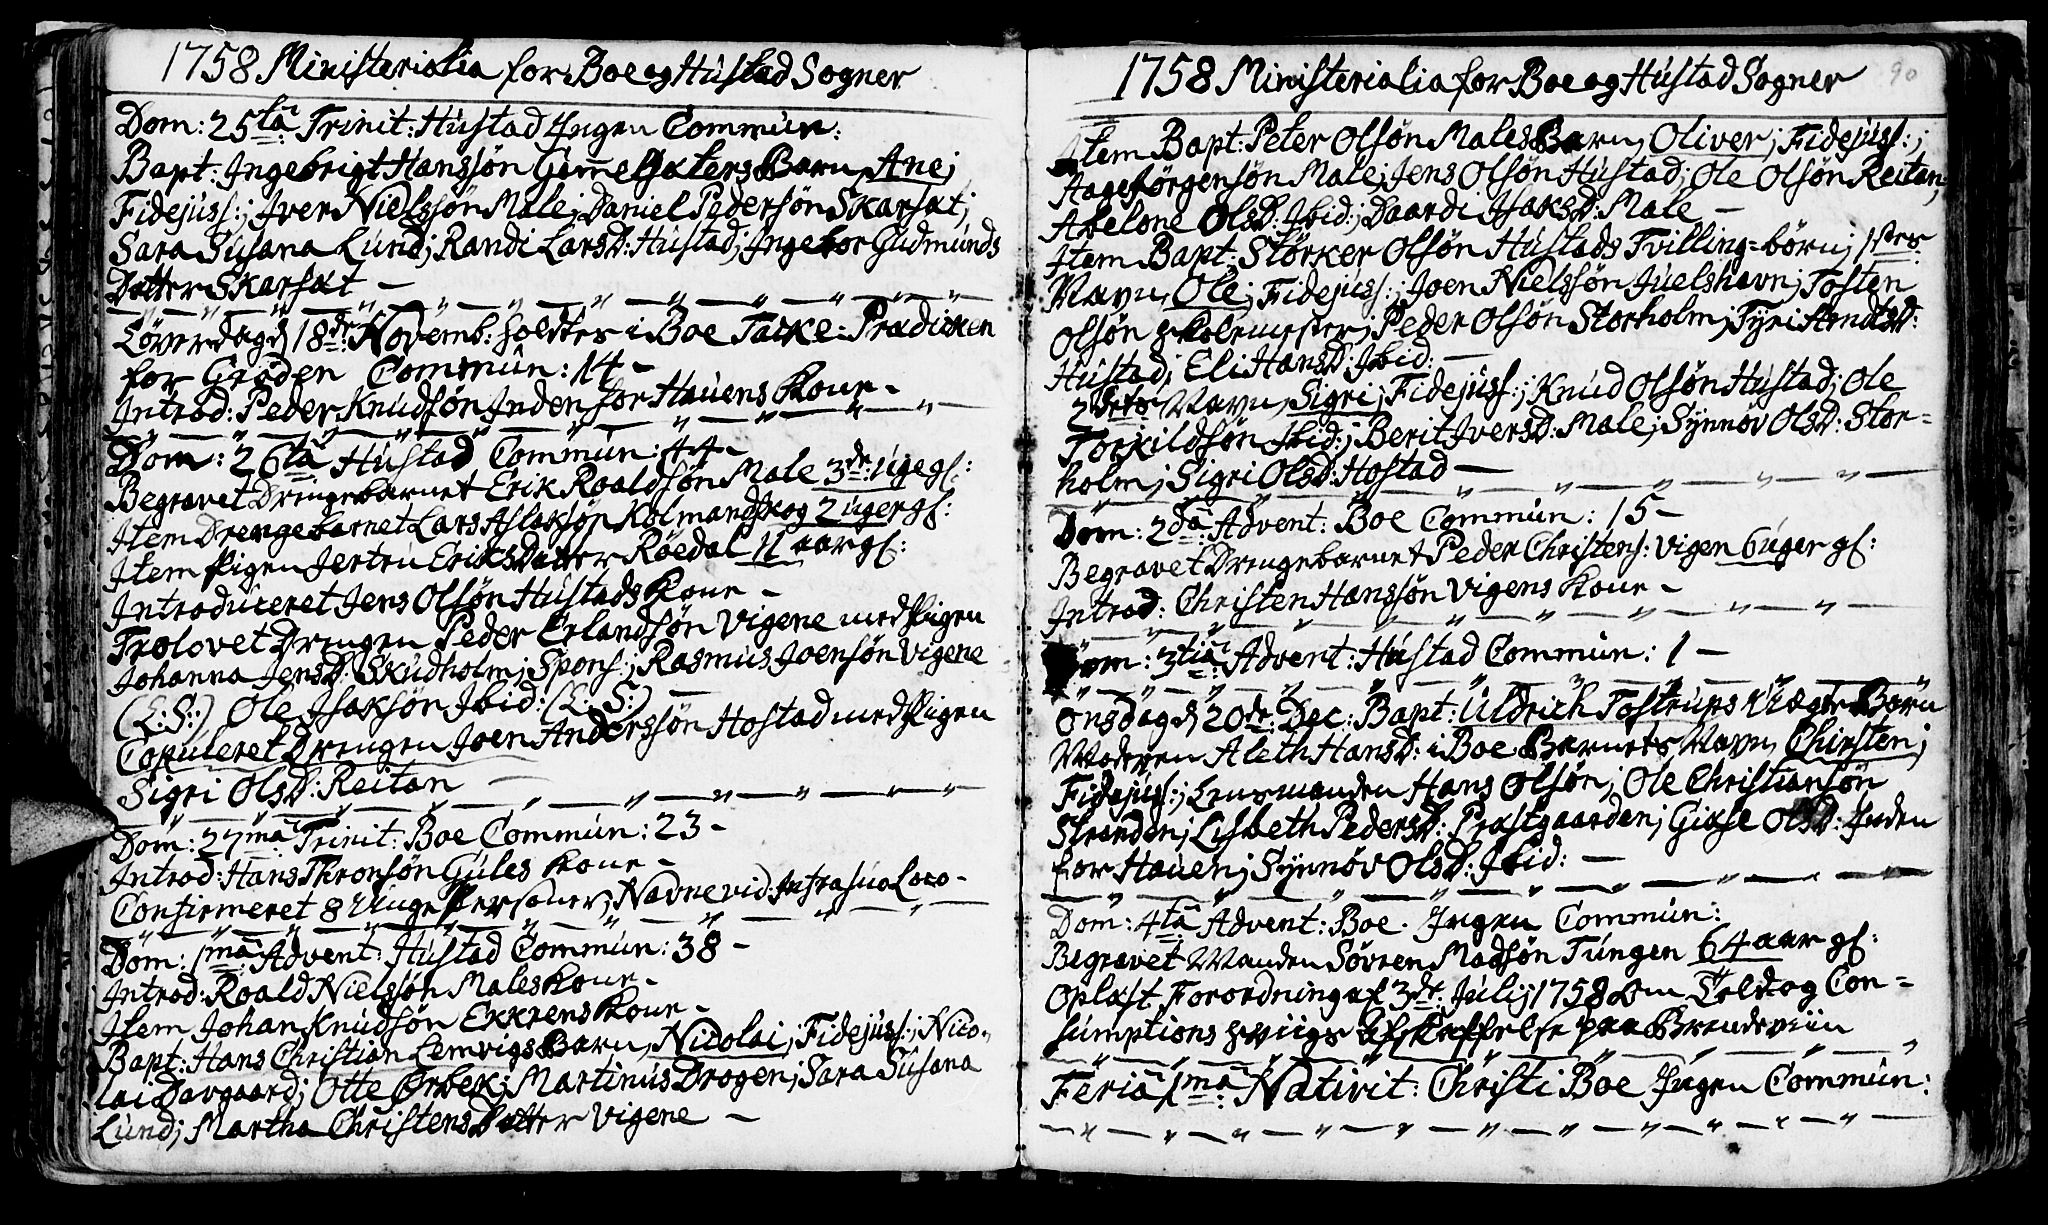 1758 Ministerialia for Boe og Hustad Sogner
Dom: 25ta Trinit: Hustad Ingen Commun:
Bapt: Ingebrigt Hanssøn Gammelsæters Barn, Ane;
Fidejuss:; Iver Nielssøn Male; Daniel Pedersøn Skarsæt;
Sara Susana Lund; Randi Larsd: Hustad; Ingebor Gudmunds
Datter Skarsæt —
Løverdag d 18de Novemb: holdtes i Boe Tacke-Prædicken
for Grøden Commun: 14 -
Introd: Peder Knudsøn Inden for Hauens Kone -
Dom: 26ta Hustad Commun: 44 -
Begravet Drengebarnet Erik Roaldsøn Male 3de: Uge gl:
Item Drengebarnet Lars Aslaksøn Kolmandskog 2 uger gl:
Item Pigen Jertru Eriks Datter Røedal 11 aar gl:
Introduceret Jens Olsøn Hustads Kone -
Trolovet Drengen Peder Erlandsøn Vigene med Pigen
Johanna Jensd: Skudholm; Spons:; Rasmus Joensøn Vigene
(L:S:) Ole Isaksøn Ibid: (L:S:) —
Copuleret Drengen Joen Anderssøn Hostad med Pigen
Sigri Olsd: Reitan —
Dom: 27ma Trinit: Boe Commun: 23 -
Introd: Hans Thronsøn Gules Kone -
Confirmeret 8 Unge Personer, Navne vid: Infra suo Loco -
Dom: 1ma Advent: Hustad Commun: 38 -
Introd: Roald Nielssøn Males Kone -
Item Johan Knudsøn Ekrens Kone -
Bapt: Hans Christian Lemvigs Barn, Nicolai; Fidejuss:; Nico-
lai Davgaard; Otte Ørbek; Martinus Drogen; Sara Susana
Lund; Martha Christens Datter Vigene —
1758 Ministerialia for Boe og Hustad Sogner
90
Item Bapt: Peter Olsøn Males Barn, Oliver; Fidejuss:;
Aage Jørgensøn Male; Jens Olsøn Hustad; Ole Olsøn Reitan;
Abelone Olsd: Ibid:; Daardi Isaksd: Male —
Item Bapt: Størker Olsøn Hustads Tvilling-børn; 1stes
Navn, Ole; Fidejuss:; Joen Nielssøn Juelshavn; Tosten
Olsøn Skolemester; Peder Olsøn Storholm; Tyri Arndtsd:
Hustad; Eli Hansd: Ibid: —
2dets Navn, Sigri; Fidejuss:; Knud Olsøn Hustad; Ole
Torkildsøn Ibid:; Berit Iversd: Male; Synnøv Olsd: Stor-
holm; Sigri Olsd: Hostad —
Dom: 2da Advent: Boe Commun: 15 -
Begravet Drengebarnet Peder Christens: Vigen 6 uger gl:
Introd: Christen Hanssøn Vigens Kone -
Dom: 3tia Advent: Hustad Commun: 1 -
Onsdag d 20de Dec: Bapt: Uldrich Tostrups Uægte Barn
Moderen Aleth Hansd: i Boe Barnets Navn, Chirsten;
Fidejuss:; Lensmanden Hans Olsøn; Ole Christiansøn
Stranden; Lisbeth Pedersd: Præstgaarden; Giøse Olsd: Inden
for Hauen; Synnøv Olsd: Ibid: —
Dom: 4ta Advent: Boe. Ingen Commun:
Begravet Manden Søvren Madsøn Tungen 64 aar gl:
Oplæst Forordning af 3de Julij 1758 om Told og Con-
sumptions Sviigs Afskaffelse paa Brendeviin
Feria 1ma Nativit: Christi Boe Ingen Commun: